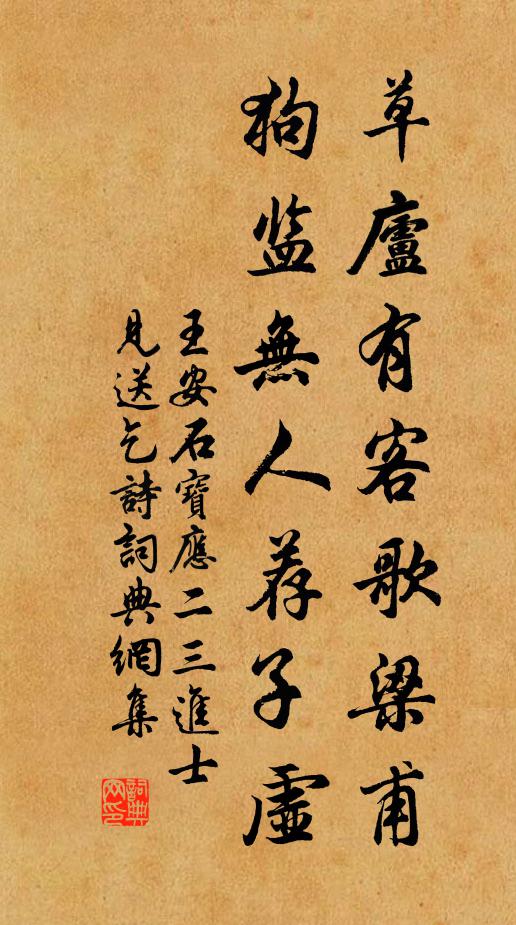 草廬有客歌梁甫
狗监無人荐子虛
王安石寶應二三進士
見送乞詩詞典網集
詞典
网印